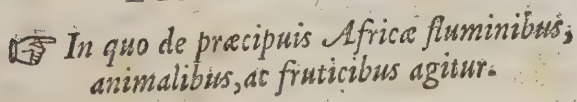 ☞ In quo de præcipuis Africæ fluminibus,
animalibus, ac fruticibus agitur.